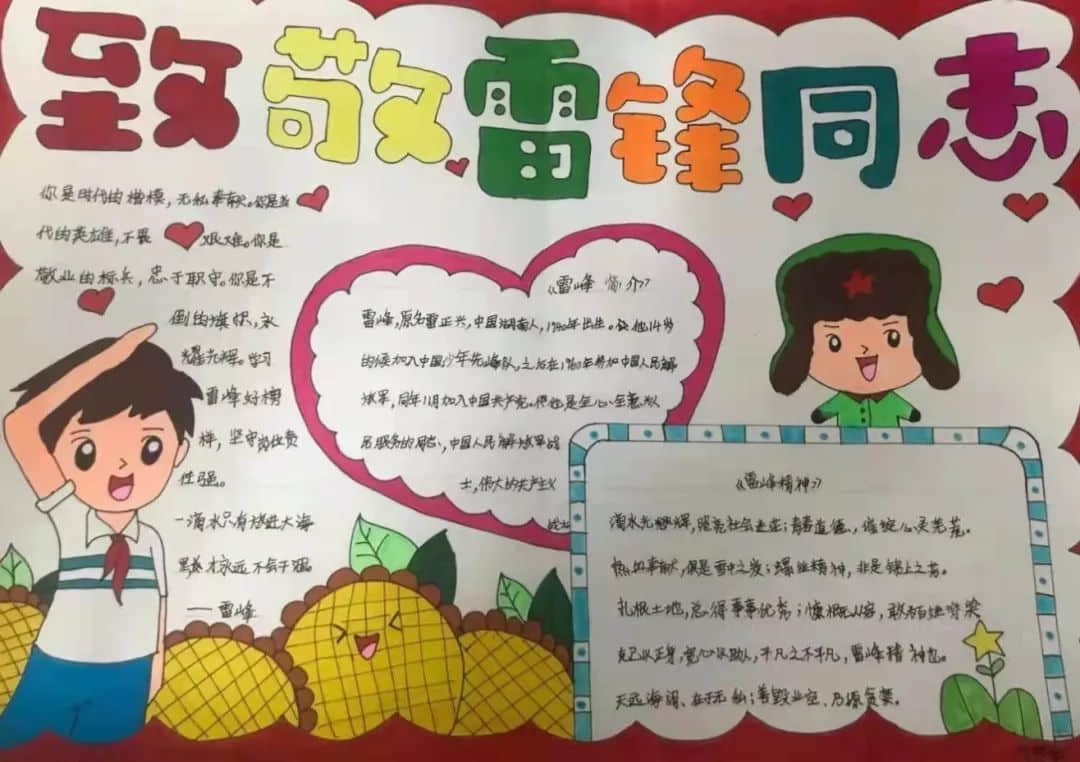 致敬雷锋同志
你是时代的楷模，无私奉献。你是当
代的英雄，不畏艰难。你是
敬业的标兵，忠于职守。你是不
倒的旗帜，永
耀光辉。学习
雷峰好榜
样，坚守岗位责
任强。
一滴水只有放进大海
里才永远不会干涸
——雷峰
《雷峰简介》
雷峰，原名雷正兴，中国湖南人，1940年出生。在他14岁
的候加入中国少年先峰队，之后在1960年参加中国人民解
放军，同年11月加入中国共产党。他也是全心全意为人
民服务的，中国人民解放军战
士，伟大的共产主义
战士
《雷峰精神》
滴水光辉，照亮社会；青春道德，绽心灵芜花。
热的奉献，俱是雪中之炭；螺丝精神，非是锦上之花。
扎根土地，总得事事优秀；慷慨从容，敢
克己以正身，宽心以助人，平凡之不平凡，雷峰精神也。
天远海阔、在于无私；善毁业空、乃源贪婪。